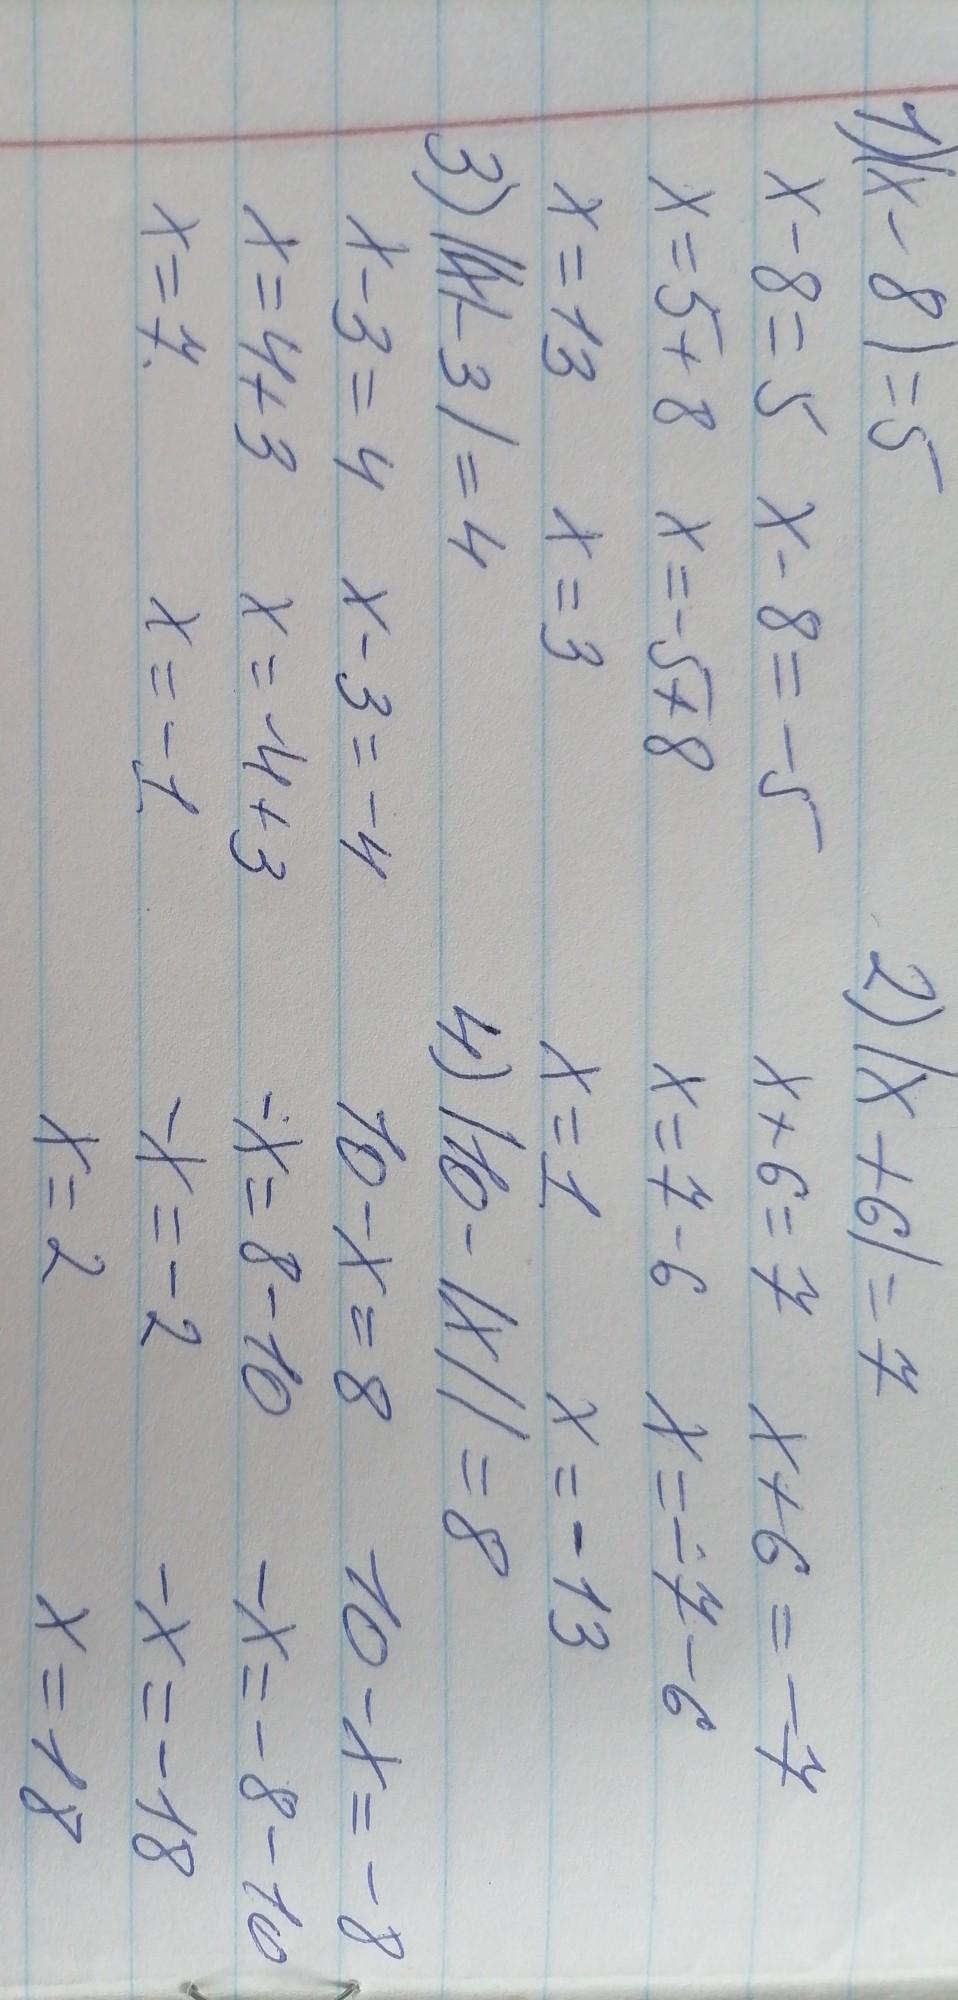 1) |x - 8| = 5
x - 8 = 5 x - 8 = -5
x = 5 + 8 x = -5 + 8
x = 13 x = 3
2) |x + 6| = 7
x + 6 = 7 x + 6 = -7
x = 7 - 6 x = -7 - 6
x = 1 x = -13
3) ||x| - 3| = 4
x - 3 = 4 x - 3 = -4
x = 4 + 3 x = -4 + 3
x = 7 x = -1
4) |10 - |x|| = 8
10 - x = 8 10 - x = -8
-x = 8 - 10 -x = -8 - 10
-x = -2 -x = -18
x = 2 x = 18